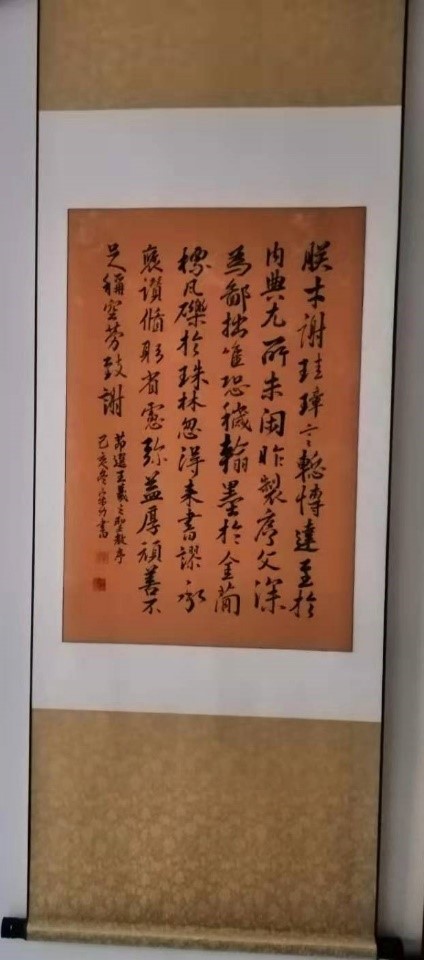 朕才謝珪璋言慙博達至於
内典尤所未閑昨製序文深
為鄙拙唯恐穢翰墨於金簡
標瓦礫於珠林忽得来書謬承
褒讚循躬省慮弥益厚顏善不
足稱空勞致謝
節選王羲之聖教序
己亥冬書